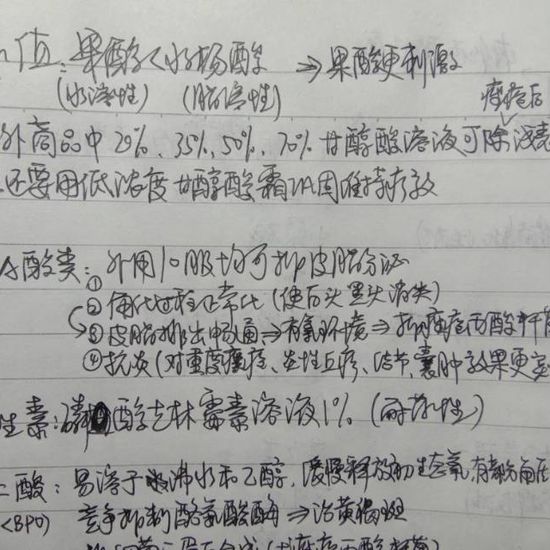 值：果酸<水杨酸 ⇒果酸更刺激
(水溶性) (脂溶性) 痤疮后
外商品中20%、35%、50%、70%甘醇酸溶液可除浅表
还要用低浓度甘醇酸霜 维持疗效
A酸类：①外用/口服均可抑皮脂分泌
②角化过程正常化（使白头黑头消失）
③皮脂排出畅通⇒有氧环境⇒抑痤疮丙酸杆菌
④抗炎（对重度痤疮、炎性丘疹、结节、囊肿效果更
生素：磷酸克林霉素溶液1%（耐药性）
二酸：易溶于沸水和乙醇,缓慢释放初生态氧,有
<BPO> 竞争抑制酪氨酸酶⇒治黄褐斑